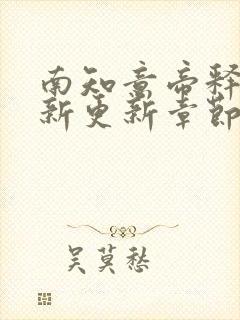 南知意帝释
新更新章節
吴莫愁